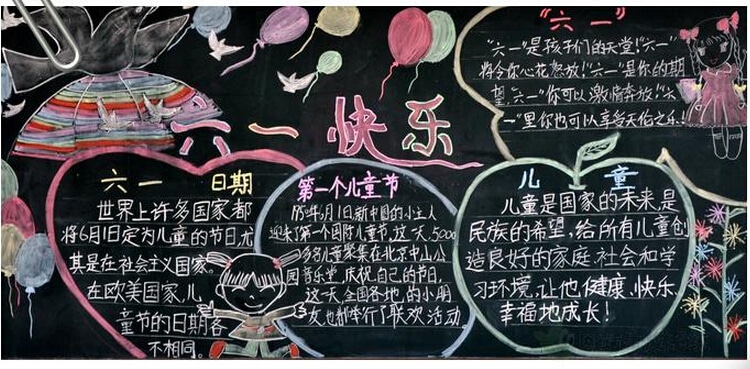 六一快乐
“六一”
“六一”是孩子们的天堂!“六一”
将令你心花怒放!“六一”是你的期
望,“六一”你可以激情奔放!“六
一”里你也可以享受天伦之乐!
六一 日期
世界上许多国家都
将6月1日定为儿童的节日,尤
其是在社会主义国家。
在欧美国家,儿
童节的日期各
不相同。
第一个儿童节
1950年6月1日新中国的小主人
迎来了第一个国际儿童节,这一天,5000
多名儿童聚集在北京中山公
园音乐堂,庆祝自己的节日,
这一天全国各地的小朋
友也都举行了联欢活动
儿童
儿童是国家的未来,是
民族的希望,给所有儿童创
造良好的家庭、社会和学
习环境,让他健康、快乐、
幸福地成长!